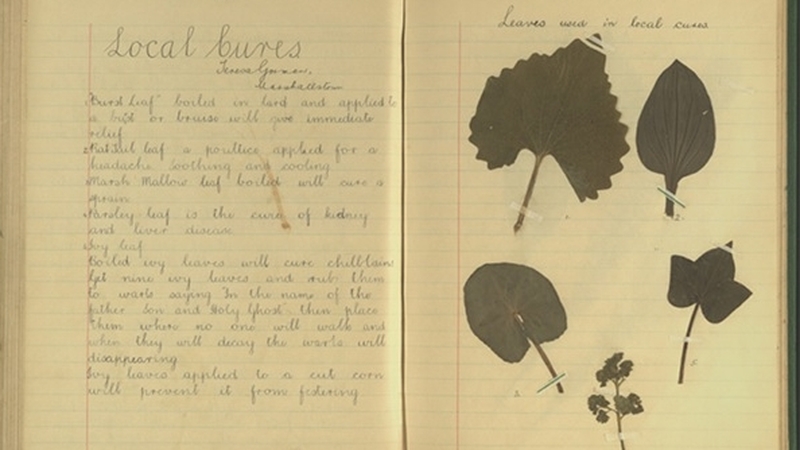 Local Cures
Marshallstown
1 "Burst Leaf" boiled in lard and applied to
a bust or bruise will give immediate
relief
2 leaf a poultice applied for a
headache soothing and cooling
Marsh Mallow leaf boiled will cure a
sprain
Parsley leaf is the cure of kidney
and liver disease
Ivy leaf
Boiled ivy leaves will cure chilblains
Get nine ivy leaves and rub them
to warts saying In the name of the
father Son and Holy Ghost" then place
them where no one will walk and
when they will decay the warts will
disappearing
Ivy leaves applied to a cut corn
will prevent it from festering
Leaves used in local cures
1.
2.
3.
5.